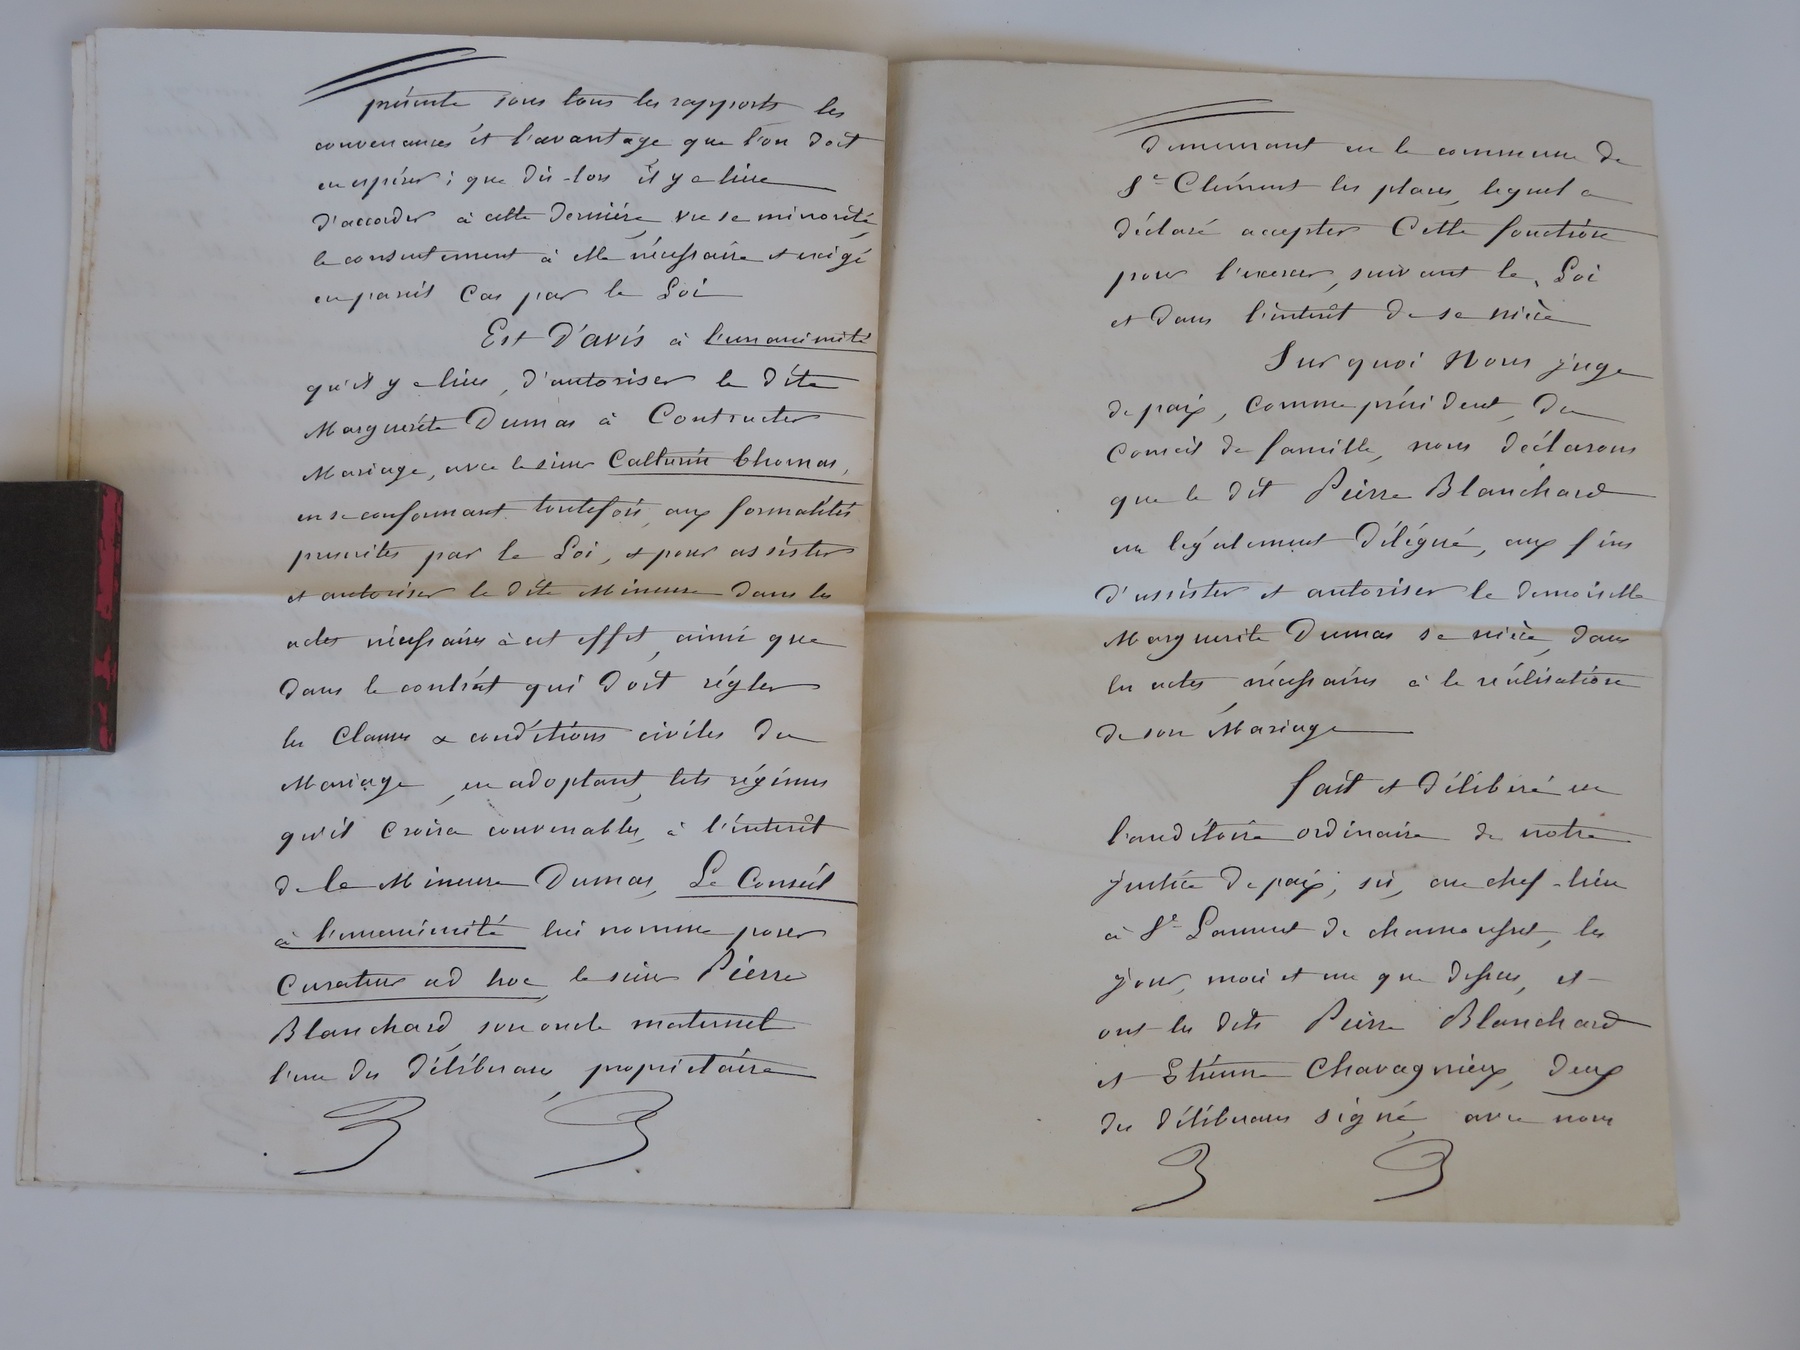 présente sous tous les rapports les
convenances et l'avantage que l'on doit
en espérer ; que dès-lors il y a lieu
d'accorder à cette dernière, vu sa minorité,
le consentement à elle nécessaire et exigé
en pareil Cas par la Loi
Est D'avis à l'unanimité
qu'il y a lieu, d'autoriser la dite
Marguerite Dumas à Contracter
Mariage, avec le sieur Catherin Thomas,
en se conformant toutefois, aux formalités
prescrites par la Loi, et pour assister
et autoriser la dite Mineure dans les
actes nécessaires à cet effet, ainsi que
dans le contrat qui doit régler
les Clauses & conditions civiles du
Mariage, en adoptant, tels régimes
qu'il croira convenables, à l'intérêt
de la Mineure Dumas, Le Conseil
à l'unanimité lui nomme pour
Curateur ad hoc, le sieur Pierre
Blanchard son oncle maternel
l'un des délibérans, propriétaire
demeurant en la commune de
St Clément les places, lequel a
déclaré accepter Cette fonction
pour l'exercer, suivant la Loi
et dans l'intérêt de sa nièce
Sur quoi Nous juge
de paix, comme président, du
Conseil de famille, nous déclarons
que le dit Pierre Blanchard
est légalement délégué, aux fins
d'assister et autoriser la demoiselle
Marguerite Dumas sa nièce, dans
les actes nécessaires à la réalisation
de son Mariage
fait et délibéré en
l'auditoire ordinaire de notre
justice de paix, sis, au chef-lieu
à St Laurent de chamousset, les
jour, mois et an que dessus, et
ont les dits Pierre Blanchard
et Etienne Chavagnieux, deux
des délibérans signé, avec nous